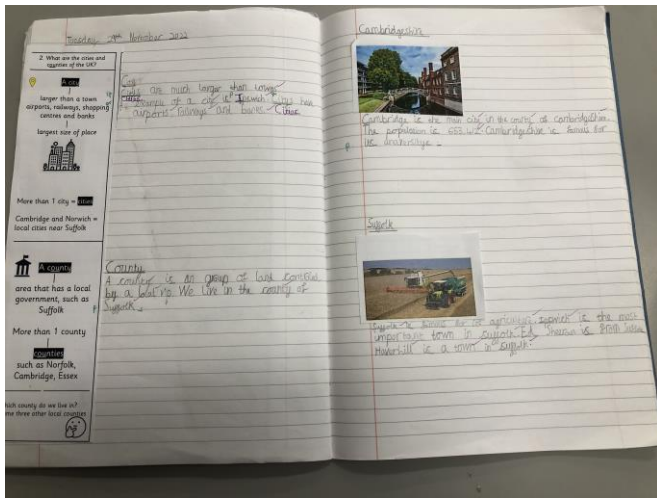 Tuesday 29th November 2022
2. What are the cities and
counties of the UK?
A city
larger than a town
airports, railways, shopping
centres and banks
largest size of place
More than 1 city = cities
Cambridge and Norwich =
local cities near Suffolk
A county
area that has a local
government, such as
Suffolk
More than 1 county
counties
such as Norfolk,
Cambridge, Essex
hich county do we live in?
me three other local counties
City
are much larger than
of a city is Ipswich
airports, railways and
County
A county is an group of land
by a local We live in the county of
Suffolk.
Cambridgeshire
Cambridge is the main city in the county of cambridgeshire.
The population is Cambridgeshire is famous for
its
Suffolk
Suffolk is famous for agriculture. Ipswich is the most
important town in suffolk Ed Sheeran is from
Haverhill is a town in